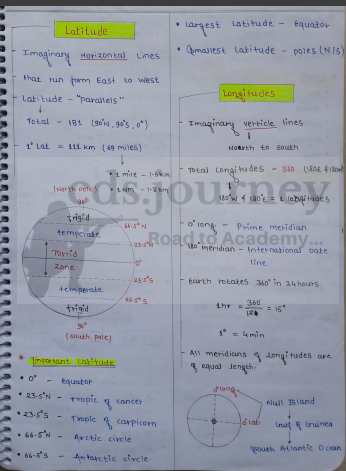 Latitude
- Imaginary Horizontal Lines
- that run form East to West
- Latitude - "parallels"
Total - 181 (90°N, 90°S, 0°)
- 1° Lat = 111 km (69 miles)
• 1 mile - 1.6km
• 1 - 1.8km
(North pole)
90°
frigid
66.5°N
temperate
23.5°N
Torrid
zone
0°
23.5°S
temperate
66.5°S
frigid
90°
(south pole)
* Important Latitude
• 0° - Equator
• 23.5°N - Tropic of cancer
• 23.5°S - Tropic of carpicorn
• 66.5°N - Arctic circle
• 66.5°S - Antarctic circle.
• Largest Latitude - Equator
• Smallest Latitude - poles (N/S)
Longitudes
- Imaginary verticle lines
North to south
- Total Longitudes - 360 (180E 180W)
180°W & 180°E = 1 longitudes
- 0° long - Prime meridian
180 meridian - International Date
line.
- Earth rotates 360° in 24 hours
1hr = 360 = 15°
1° = 4 min
- All meridians of longitudes are
of equal length.
0° long.
0° Lat.
Null Island
Gulf of Guinea
South Atlantic Ocean
cds.journey
Road to Academy...